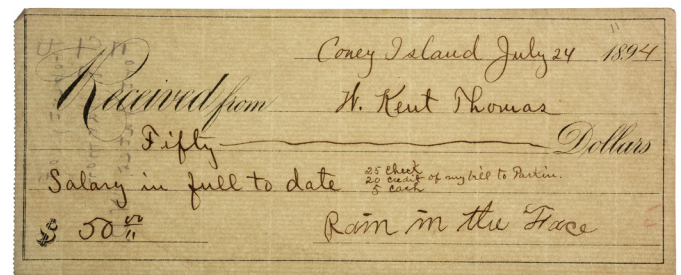 Coney Island July 24 1894
Received from W. Kent Thomas
Fifty Dollars
Salary in full to date 25 Check
20 credit of my bill to Parkin.
5 cash
$ 50 00/11 Rain in the Face